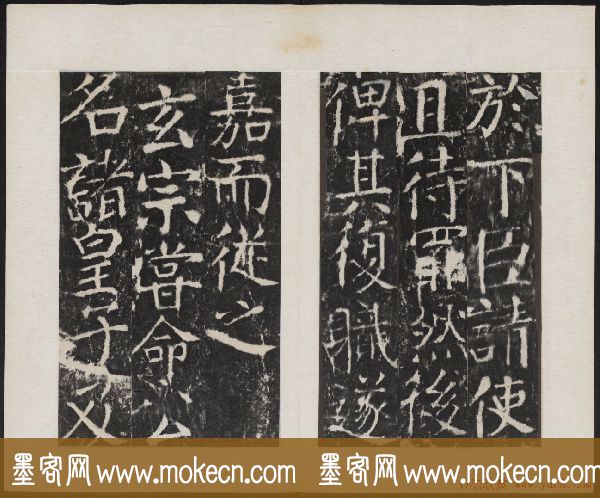 於下臣請使
且待罪然後
俾其復職遂
嘉而從之
玄宗嘗命公
名諸皇子又
墨客网 www.mokecn.com
墨客网 www.mokecn.com